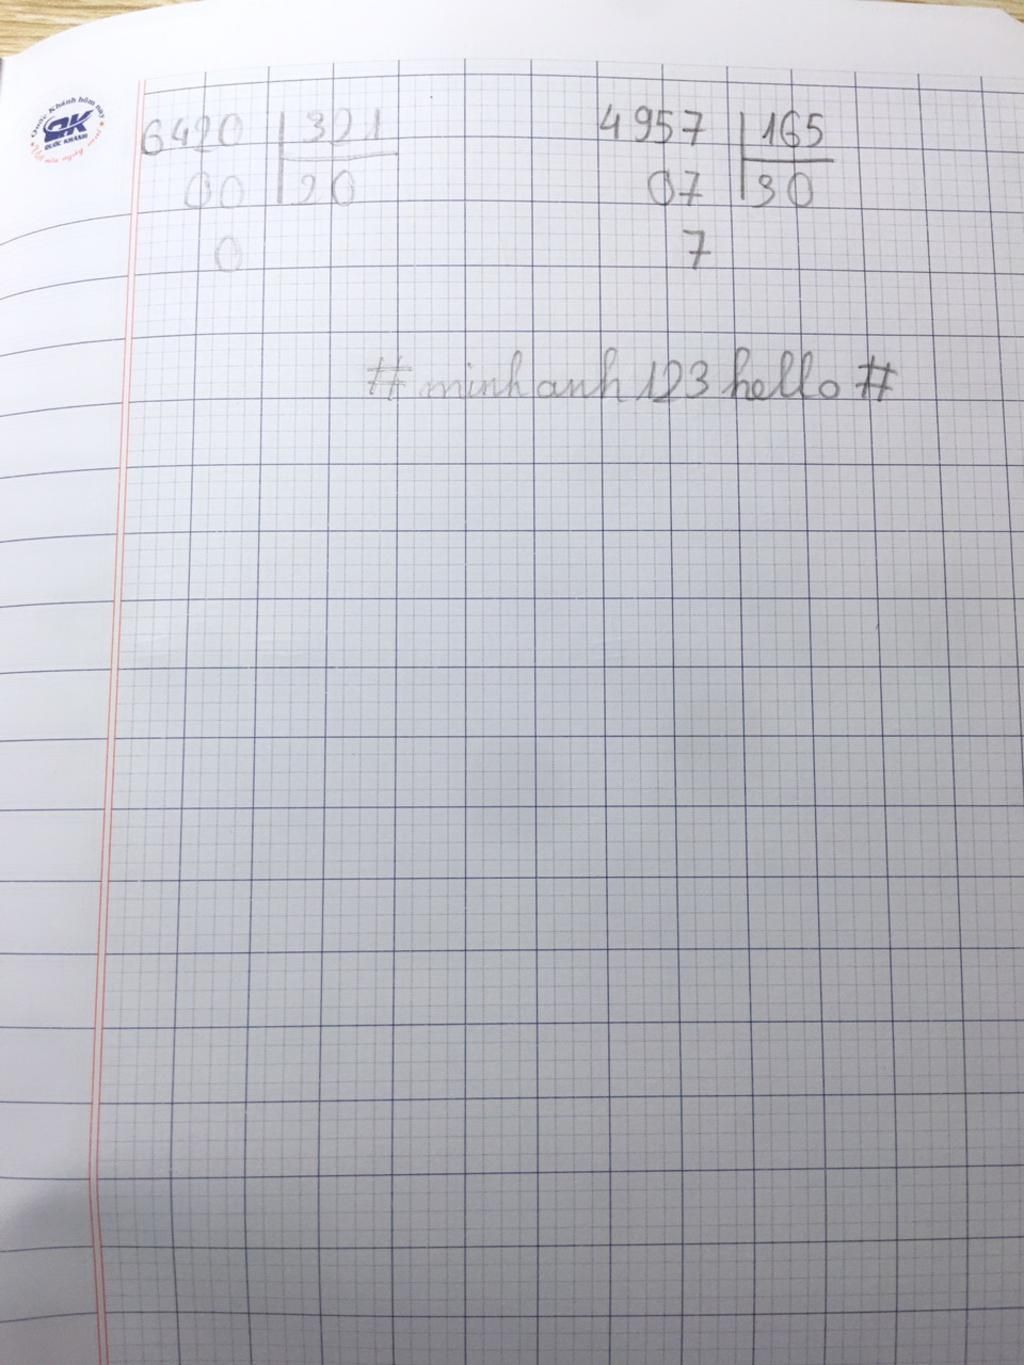 Quốc Khánh hôm nay
QK
QUỐC KHÁNH
6420 321
00 20
0
4957 165
07 30
7
#minhanh123hello#